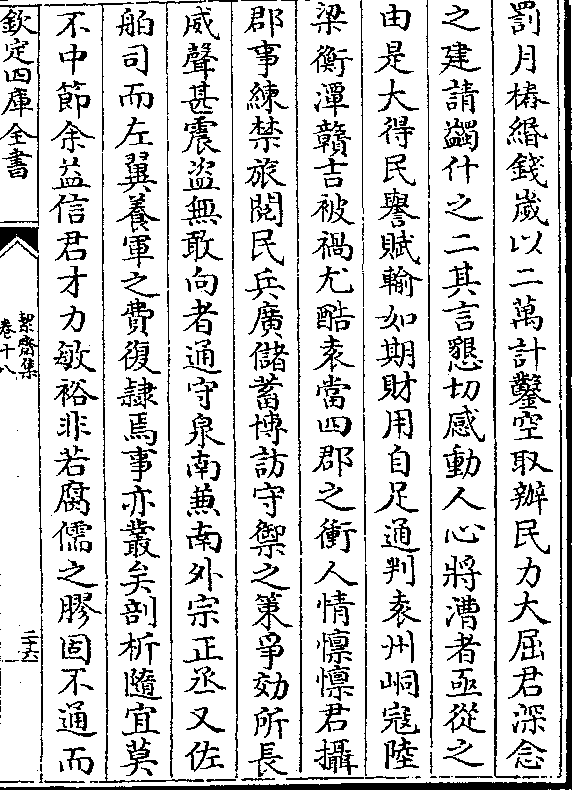 罰月樁緡錢歲以二萬計鑿空取辦民力大屈君深念
之建請蠲什之二其言懇切感動人心將漕者亟從之
由是大得民譽賦輸如期財用自足通判袁州峒寇陸
梁衡潭贛吉被禍尤酷袁當四郡之衝人情懍懍君攝
郡事練禁旅閱民兵廣儲蓄博訪守禦之策爭効所長
威聲甚震盜無敢向者通守泉南兼南外宗正丞又佐
舶司而左翼養軍之費復隷焉事亦叢矣剖析隨宜莫
不中節余益信君才力敏裕非若腐儒之膠固不通而
欽定四庫全書
絜齋集
卷十八
二十六